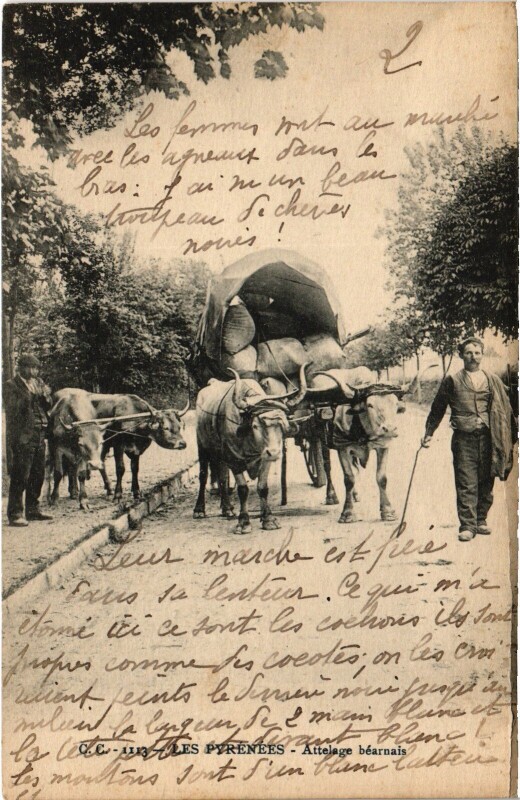 2
Les femmes vont au marché
avec les agneaux dans les
bras : j'ai vu un beau
troupeau de chèvres
noires !
Leur marche est fière
dans sa lenteur. Ce qui m'a
étonné ici ce sont les cochons ils sont
propres comme des cocotes, on les croi
raient peints le derrière noir jusqu'au
milieu la largeur de 2 mains blanc et
la tête devant blanc !
C. C. - 1113 - LES PYRÉNÉES - Attelage béarnais
les moutons sont d'un blanc laiteux